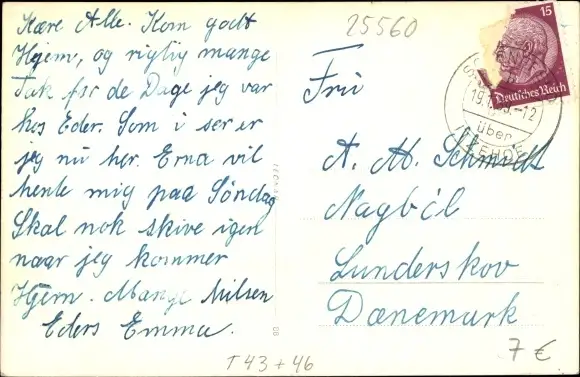 Kære Alle. Kom godt
Hjem, og rigtig mange
Tak for de Dage jeg var
hos Eder. Som i ser er
jeg nu her. Erna vil
hente mig paa Söndag
Skal nok skive igen
naar jeg kommer
Hjem. Mange Hilsen
Eders Emma.
25560
15
Deutsches Reich
über
Fru
A. M. Schmidt
Nagböl
Lunderskov
Dænemark
7 €
T 43 + 46